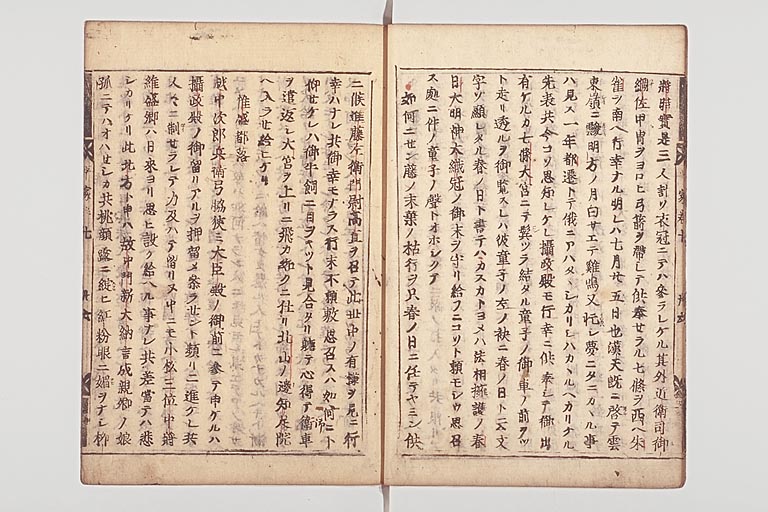 将雅実是三人計リ衣冠ニテハ参ラレケル其外近衛司御
綱佐甲冑ヲヨロヒ弓箭ヲ帯シテ供奉セラル七条ヲ西ヘ朱
雀ヲ南ヘ行幸ナル明レハ七月廿五日也漢天既ニ啓テ雲
東嶺ニ聳明方ノ月白サエテ鶏鳴又忙シ夢ニタニカヽル事
ハ見ス一年都遷トテ俄ニアハタヽシカリシハカヽルヘカリケル
先表共今コソ思知ケレ摂政殿モ行幸ニ供奉シテ御出
有ケルカ七条大宮ニテ髪ツラ結タル童子ノ御車ノ前ヲツ
ト走リ透ルヲ御覧スレハ彼童子ノ左ノ袂ニ春ノ日ト云文
字ソ顕レタル春ノ日ト書テハカスカトヨメハ法相擁護ノ春
日大明神大織冠ノ御末ヲ守リ給フニコソト頼モシウ思召
ス処ニ件ノ童子ノ声トオホシクテ
如何ニセン藤ノ末葉ノ枯行ヲ只春ノ日ニ任テヤミン供
ニ候進藤左衛門尉高直ヲ召テ此世中ノ有様ヲ見ニ行
幸ハナレ共御幸モナラス行末不頼敷思召スハ如何ニト
仰セケレハ御牛飼ニ目ヲキツト見合タリ軈テ心得テ御車
ヲ遣返シ大宮ヲ上リニ飛カ如クニ仕リ北山ノ辺知足院
ヘ入ラセ給ヒケリ
惟盛都落
越中次郎兵衛弓脇挟ミ大臣殿ノ御前ニ参テ申ケルハ
摂政殿ノ御留リアルヲ押留メ参ラセント頻リニ進ケレ共
人々ニ制セラレテ力及ハテ留リヌ中ニモ小松三位中将
維盛卿ハ日来ヨリ思ヒ設ケ給ヘル事ナレ共差当テハ悲
シカリケリ此北方ト申ハ故中御門新大納言成親卿ノ娘
孤ニテハオハセシカ共桃顔露ニ綻ヒ紅粉眼ニ媚ヲナシ柳